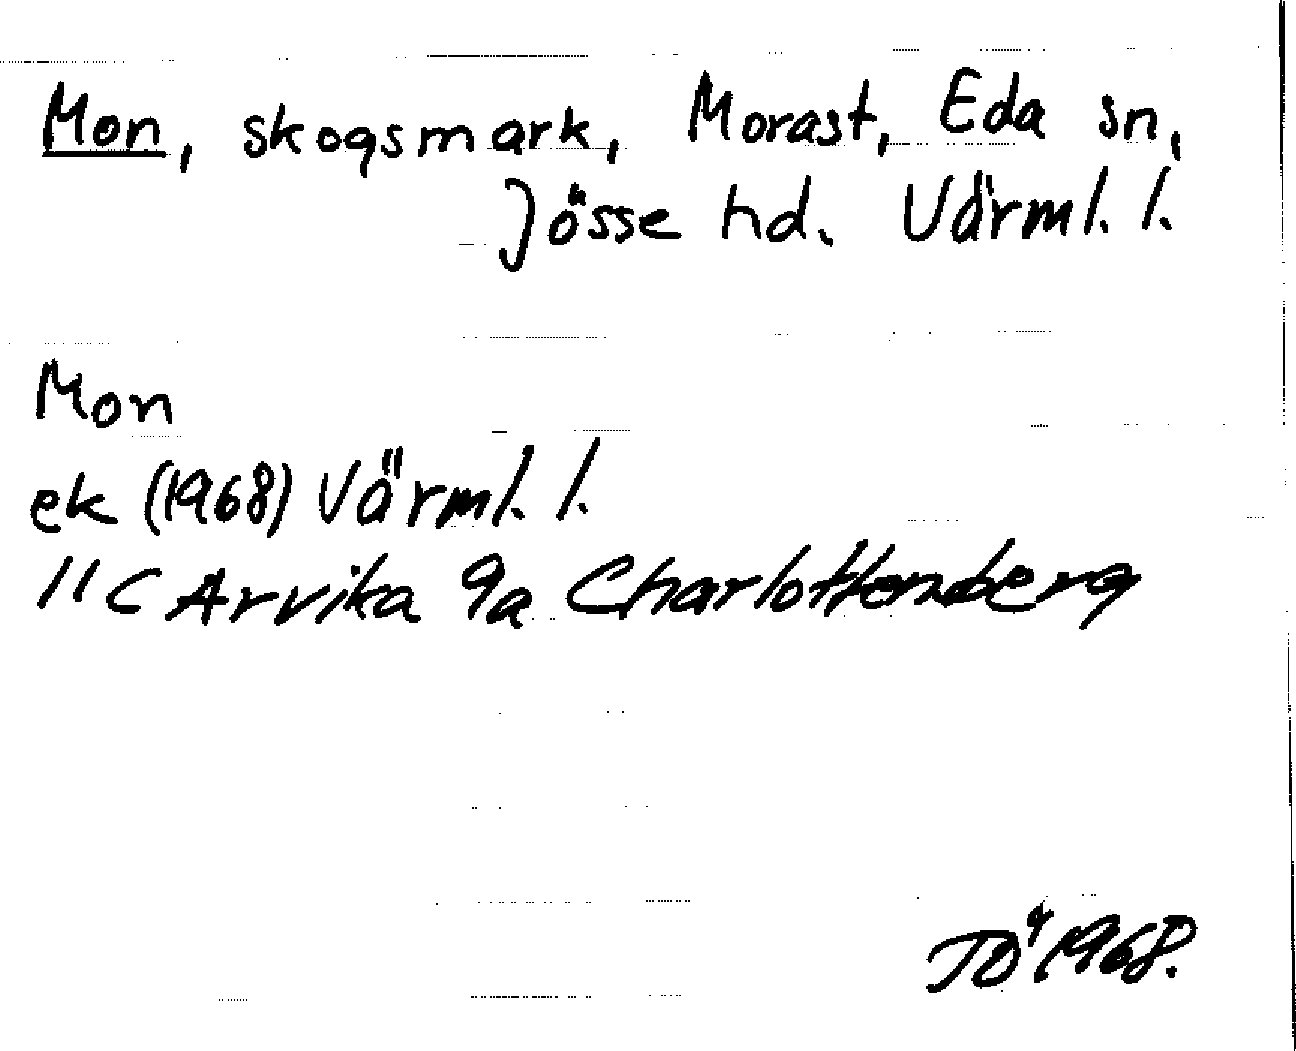 Mon, skogsmark, Morast, Eda sn,
Jösse hd. Värml. l.
Mon
ek (1968) Värml. l.
11C Arvika 9a Charlottenberg
TÖ 1968.